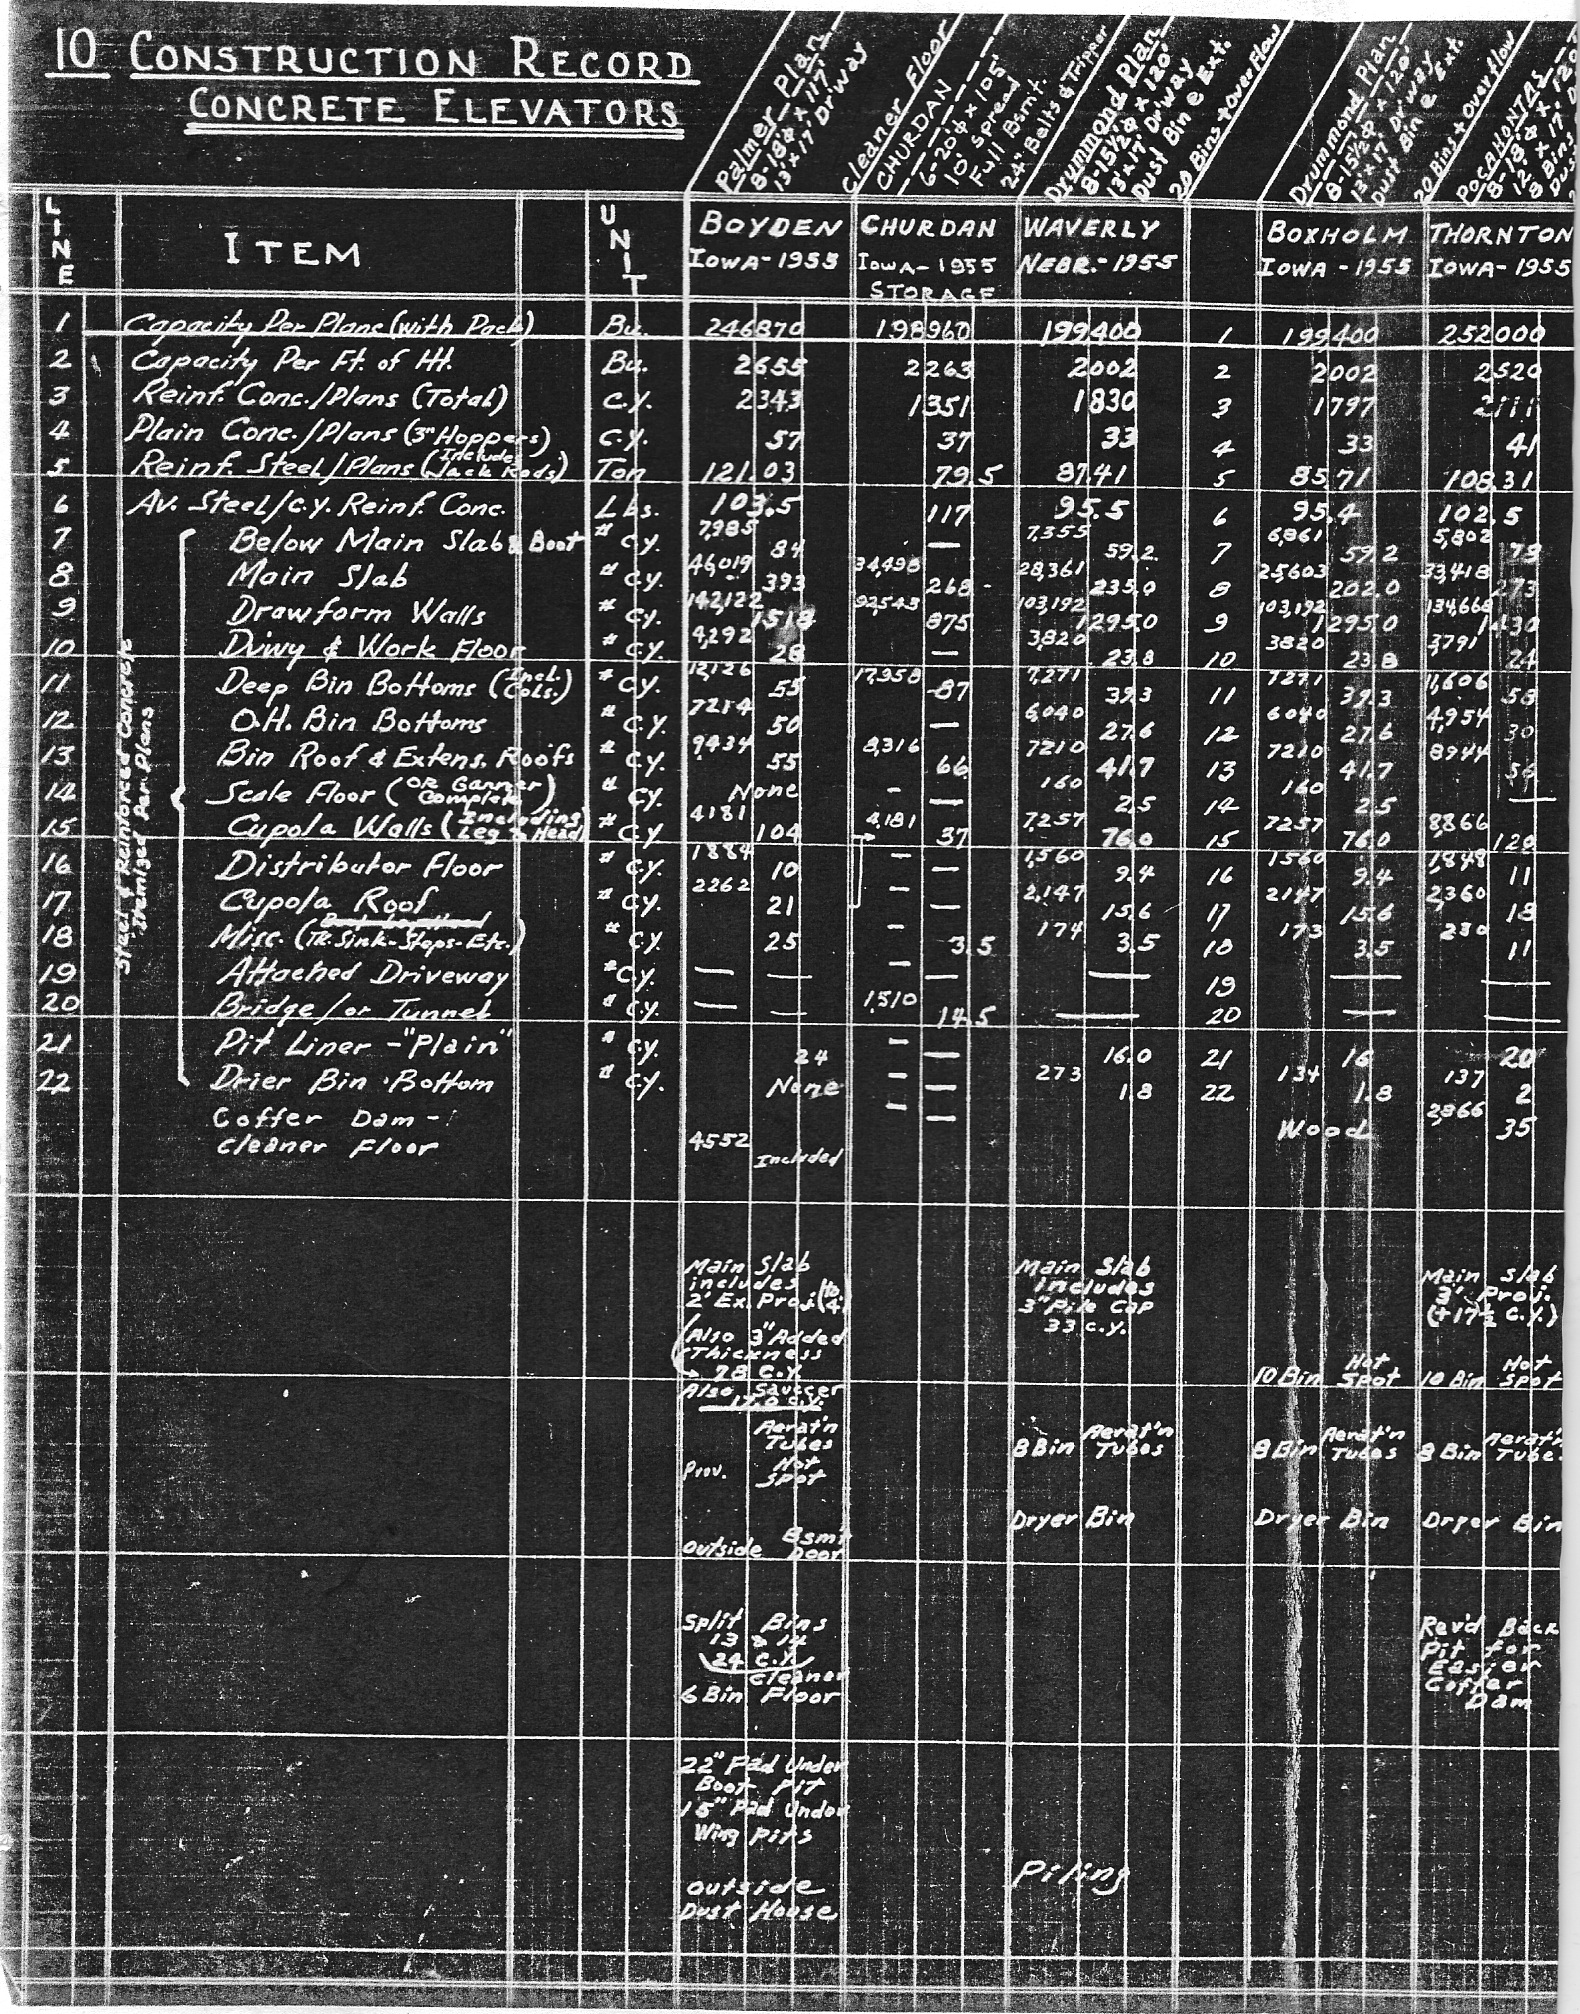 10 CONSTRUCTION RECORD
CONCRETE ELEVATORS
Palmer Plan
8-18'ϕ x 117'
13'x17' Dr'way
Cleaner Floor
CHURDAN
6-20'ϕ x 105'
10' Spread
Full Bsmt.
24" Belts & Tripper
Drummond Plan
8-15½'ϕ x 120'
13'x17' Dr'way
Dust Bin & Ext.
20 Bins + overflow
Drummond Plan
8-15½'ϕ x 120'
13'x17' Dr'way
Dust Bin & Ext.
20 Bins + overflow
POCAHONTAS
8-18'ϕ x 120'
12'x17'
LINE ITEM UNIT BOYDEN CHURDAN WAVERLY BOXHOLM THORNTON
IOWA-1955 IOWA-1955 NEBR.-1955 IOWA-1955 IOWA-1955
STORAGE
1 Capacity Per Plans (with Pack) Bu. 246870 198960 199400 1 199400 252000
2 Capacity Per Ft. of Ht. Bu. 2655 2263 2002 2 2002 2520
3 Reinf. Conc./Plans (Total) C.Y. 2343 1351 1830 3 1797 2111
4 Plain Conc./Plans (3" Hoppers) C.Y. 57 37 33 4 33 41
5 Reinf. Steel/Plans (Includes Jack Rods) Ton 121.03 79.5 87.41 5 85.71 108.31
6 Av. Steel/C.Y. Reinf. Conc. Lbs. 103.5 117 95.5 6 95.4 102.5
Steel & Reinforced Concrete
Itemized Per Plans
7 Below Main Slab & Boot # C.Y. 7,985 84 — 7,355 59.2 7 6,861 59.2 5,802 73
8 Main Slab # C.Y. 46,019 393 34,498 268 28,361 235.0 8 25,603 202.0 33,418 273
9 Drawform Walls # C.Y. 142,122 1518 92,543 875 103,192 1295.0 9 103,192 1295.0 134,668 1430
10 Dr'wy & Work Floor # C.Y. 4,292 28 — 3,820 23.8 10 3820 23.8 3,791 24
11 Deep Bin Bottoms (Incl. Cols.) # C.Y. 12,126 55 17,958 87 7,271 39.3 11 7271 39.3 11,606 58
12 O.H. Bin Bottoms # C.Y. 7254 50 — 6,040 27.6 12 6040 27.6 4,954 30
13 Bin Roof & Extens. Roofs # C.Y. 9434 55 8,316 66 7210 41.7 13 7210 41.7 8944 56
14 Scale Floor (OR Garner Complete) # C.Y. None — — 160 2.5 14 160 2.5 —
15 Cupola Walls (Including Leg & Head) # C.Y. 4181 104 4,181 37 7,257 76.0 15 7257 76.0 8,866 120
16 Distributor Floor # C.Y. 1884 10 — — 1,560 9.4 16 1560 9.4 1,848 11
17 Cupola Roof # C.Y. 2262 21 — — 2,147 15.6 17 2147 15.6 2,360 18
18 Misc. (Tr. Sink-Steps-Etc.) # C.Y. 25 — 3.5 174 3.5 18 173 3.5 230 11
19 Attached Driveway # C.Y. — — — — — 19 — —
20 Bridge/or Tunnel # C.Y. — — 1,510 14.5 — 20 — —
21 Pit Liner - "Plain" # C.Y. 24 — — 16.0 21 16 20
22 Drier Bin Bottom # C.Y. None — — 273 1.8 22 134 1.8 137 2
Coffer Dam - — — Wood 2,866 35
Cleaner Floor 4552 Included
Main Slab
includes
2' Ex. Proj.
(Also 3" Added
Thickness
→ 78 C.Y.
Also Saucer
17.0 C.Y.
Aerat'n
Tubes
Prov. Hot
Spot
Outside Bsm't
Door
Split Bins
13 & 14
24 C.Y.
Cleaner
6 Bin Floor
22" Pad Under
Boot Pit
15" Pad Under
Wing Pits
Outside
Dust House
Main Slab
includes
3" Pile Cap
33 C.Y.
8 Bin Aerat'n
Tubes
Dryer Bin
Piling
10 Bin Hot
Spot
8 Bin Aerat'n
Tubes
Dryer Bin
Main Slab
3' Proj.
(+17½ C.Y.)
10 Bin Hot
Spot
8 Bin Aerat'n
Tube
Dryer Bin
Rev'd Back
Pit for
Easier
Coffer
Dam